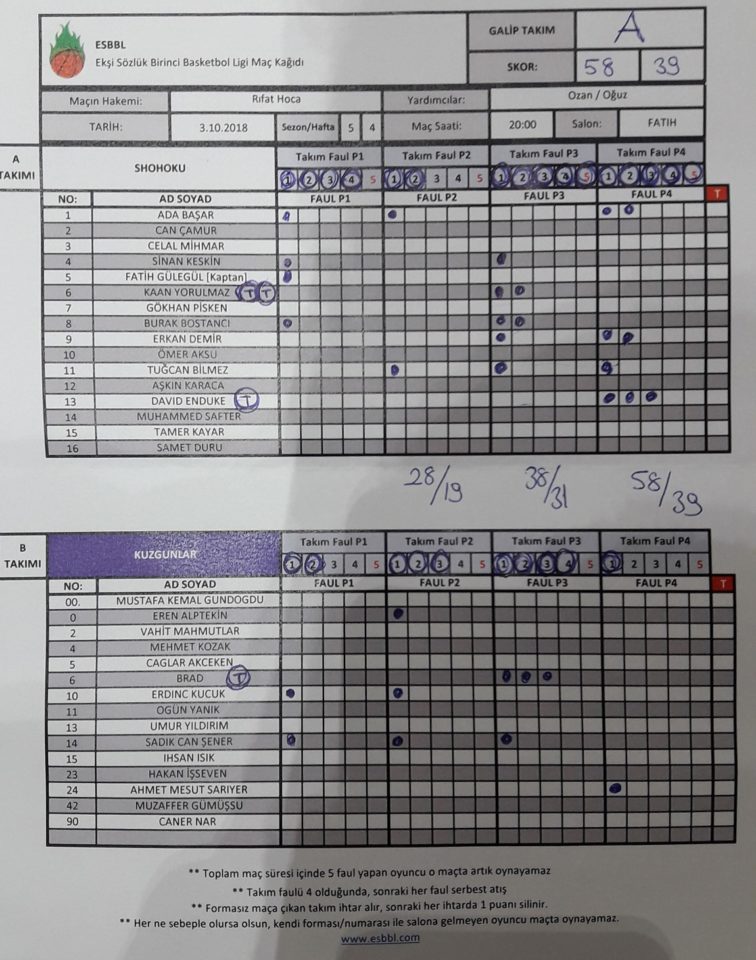 ESBBL
Ekşi Sözlük Birinci Basketbol Ligi Maç Kağıdı
GALİP TAKIM A
SKOR: 58 39
Maçın Hakemi: Rıfat Hoca Yardımcılar: Ozan / Oğuz
TARİH: 3.10.2018 Sezon/Hafta 5 4 Maç Saati: 20:00 Salon: FATIH
A TAKIMI
SHOHOKU
Takım Faul P1 Takım Faul P2 Takım Faul P3 Takım Faul P4
1 2 3 4 5 1 2 3 4 5 1 2 3 4 5 1 2 3 4 5
NO: AD SOYAD FAUL P1 FAUL P2 FAUL P3 FAUL P4 T
1 ADA BAŞAR
2 CAN ÇAMUR
3 CELAL MİHMAR
4 SİNAN KESKİN
5 FATİH GÜLEGÜL [Kaptan]
6 KAAN YORULMAZ T T
7 GÖKHAN PİSKEN
8 BURAK BOSTANCI
9 ERKAN DEMİR
10 ÖMER AKSU
11 TUĞCAN BİLMEZ
12 AŞKIN KARACA
13 DAVID ENDUKE T
14 MUHAMMED SAFTER
15 TAMER KAYAR
16 SAMET DURU
28/19 38/31 58/39
B TAKIMI
KUZGUNLAR
Takım Faul P1 Takım Faul P2 Takım Faul P3 Takım Faul P4
1 2 3 4 5 1 2 3 4 5 1 2 3 4 5 1 2 3 4 5
NO: AD SOYAD FAUL P1 FAUL P2 FAUL P3 FAUL P4 T
00. MUSTAFA KEMAL GUNDOGDU
0 EREN ALPTEKİN
2 VAHİT MAHMUTLAR
4 MEHMET KOZAK
5 CAGLAR AKCEKEN
6 BRAD T
10 ERDINC KUCUK
11 OGÜN YANIK
13 UMUR YILDIRIM
14 SADIK CAN ŞENER
15 IHSAN ISIK
23 HAKAN İŞSEVEN
24 AHMET MESUT SARIYER
42 MUZAFFER GÜMÜŞSU
90 CANER NAR
** Toplam maç süresi içinde 5 faul yapan oyuncu o maçta artık oynayamaz
** Takım faulü 4 olduğunda, sonraki her faul serbest atış
** Formasız maça çıkan takım ihtar alır, sonraki her ihtarda 1 puanı silinir.
** Her ne sebeple olursa olsun, kendi forması/numarası ile salona gelmeyen oyuncu maçta oynayamaz.
www.esbbl.com